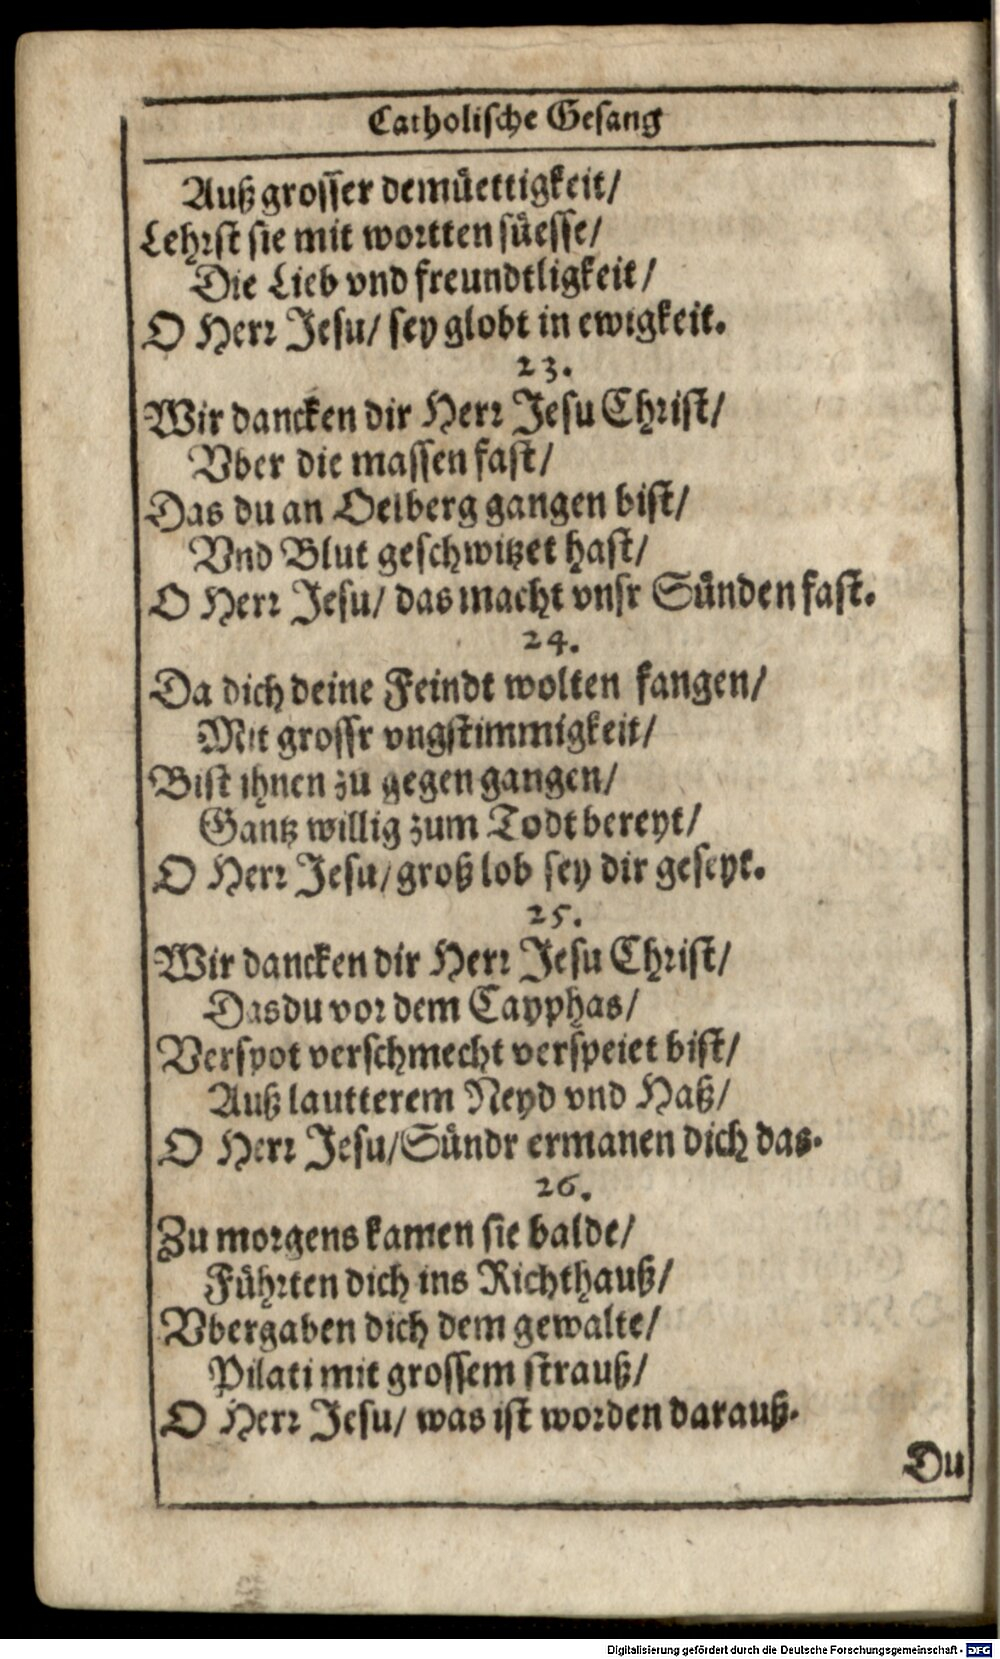 Catholische Gesang
Auß grosser demüettigkeit/
Lehrst sie mit wortten süesse/
Die Lieb vnd freundtligkeit/
O Herr Jesu/ sey globt in ewigkeit.
23.
Wir dancken dir Herr Jesu Christ/
Vber die massen fast/
Das du an Oelberg gangen bist/
Vnd Blut geschwitzet hast/
O Herr Jesu/ das macht vnsr Sünden fast.
24.
Da dich deine Feindt wolten fangen/
Mit grossr vngstimmigkeit/
Bist ihnen zu gegen gangen/
Gantz willig zum Todt bereyt/
O Herr Jesu/ groß lob sey dir geseyt.
25.
Wir dancken dir Herr Jesu Christ/
Das du vor dem Cayphas/
Verspot verschmecht verspeiet bist/
Auß lautterem Neyd vnd Haß/
O Herr Jesu/ Sündr ermanen dich das.
26.
Zu morgens kamen sie balde/
Führten dich ins Richthauß/
Vbergaben dich dem gewalte/
Pilati mit grossem strauß/
O Herr Jesu/ was ist worden darauß.
Du
Digitalisierung gefördert durch die Deutsche Forschungsgemeinschaft - DFG